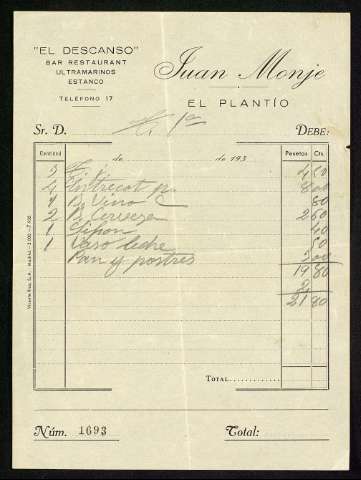 "EL DESCANSO"
BAR RESTAURANT
ULTRAMARINOS
ESTANCO
TELÉFONO 17
Juan Monje
EL PLANTÍO
Sr. D. DEBE:
Cantidad de de 193 Pesetas Cts.
4 Entrecot p. 8 00
1 B. Vino 80
2 B. Cerveza 2 60
1 Sifon 40
1 Vaso leche
Pan y postres
19 80
2
21 80
TOTAL
Núm. 1693 Total: